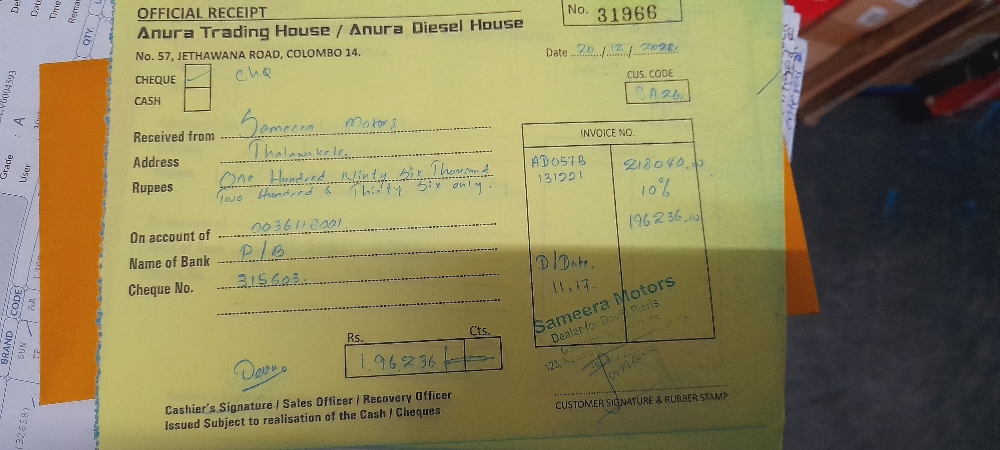 OFFICIAL RECEIPT
No. 31966
Anura Trading House / Anura Diesel House
No. 57, JETHAWANA ROAD, COLOMBO 14.
Date 20/12/
CHEQUE chq
CASH
CUS. CODE
Received from Sameera Motors
Address Thalawakele.
Rupees One Hundred Ninty Six Thousand
Two Hundred & Thirty Six only.
On account of
Name of Bank P/B
Cheque No. 315603
INVOICE NO.
AD057B 218040.00
131221 10%
196236.00
D/Date.
11.17.
Sameera Motors
Dealer for
Rs. Cts.
196236
Cashier's Signature / Sales Officer / Recovery Officer
Issued Subject to realisation of the Cash / Cheques
CUSTOMER SIGNATURE & RUBBER STAMP
QTY.
Grade : A
User
BRAND CODE
SUN AA
(32658)